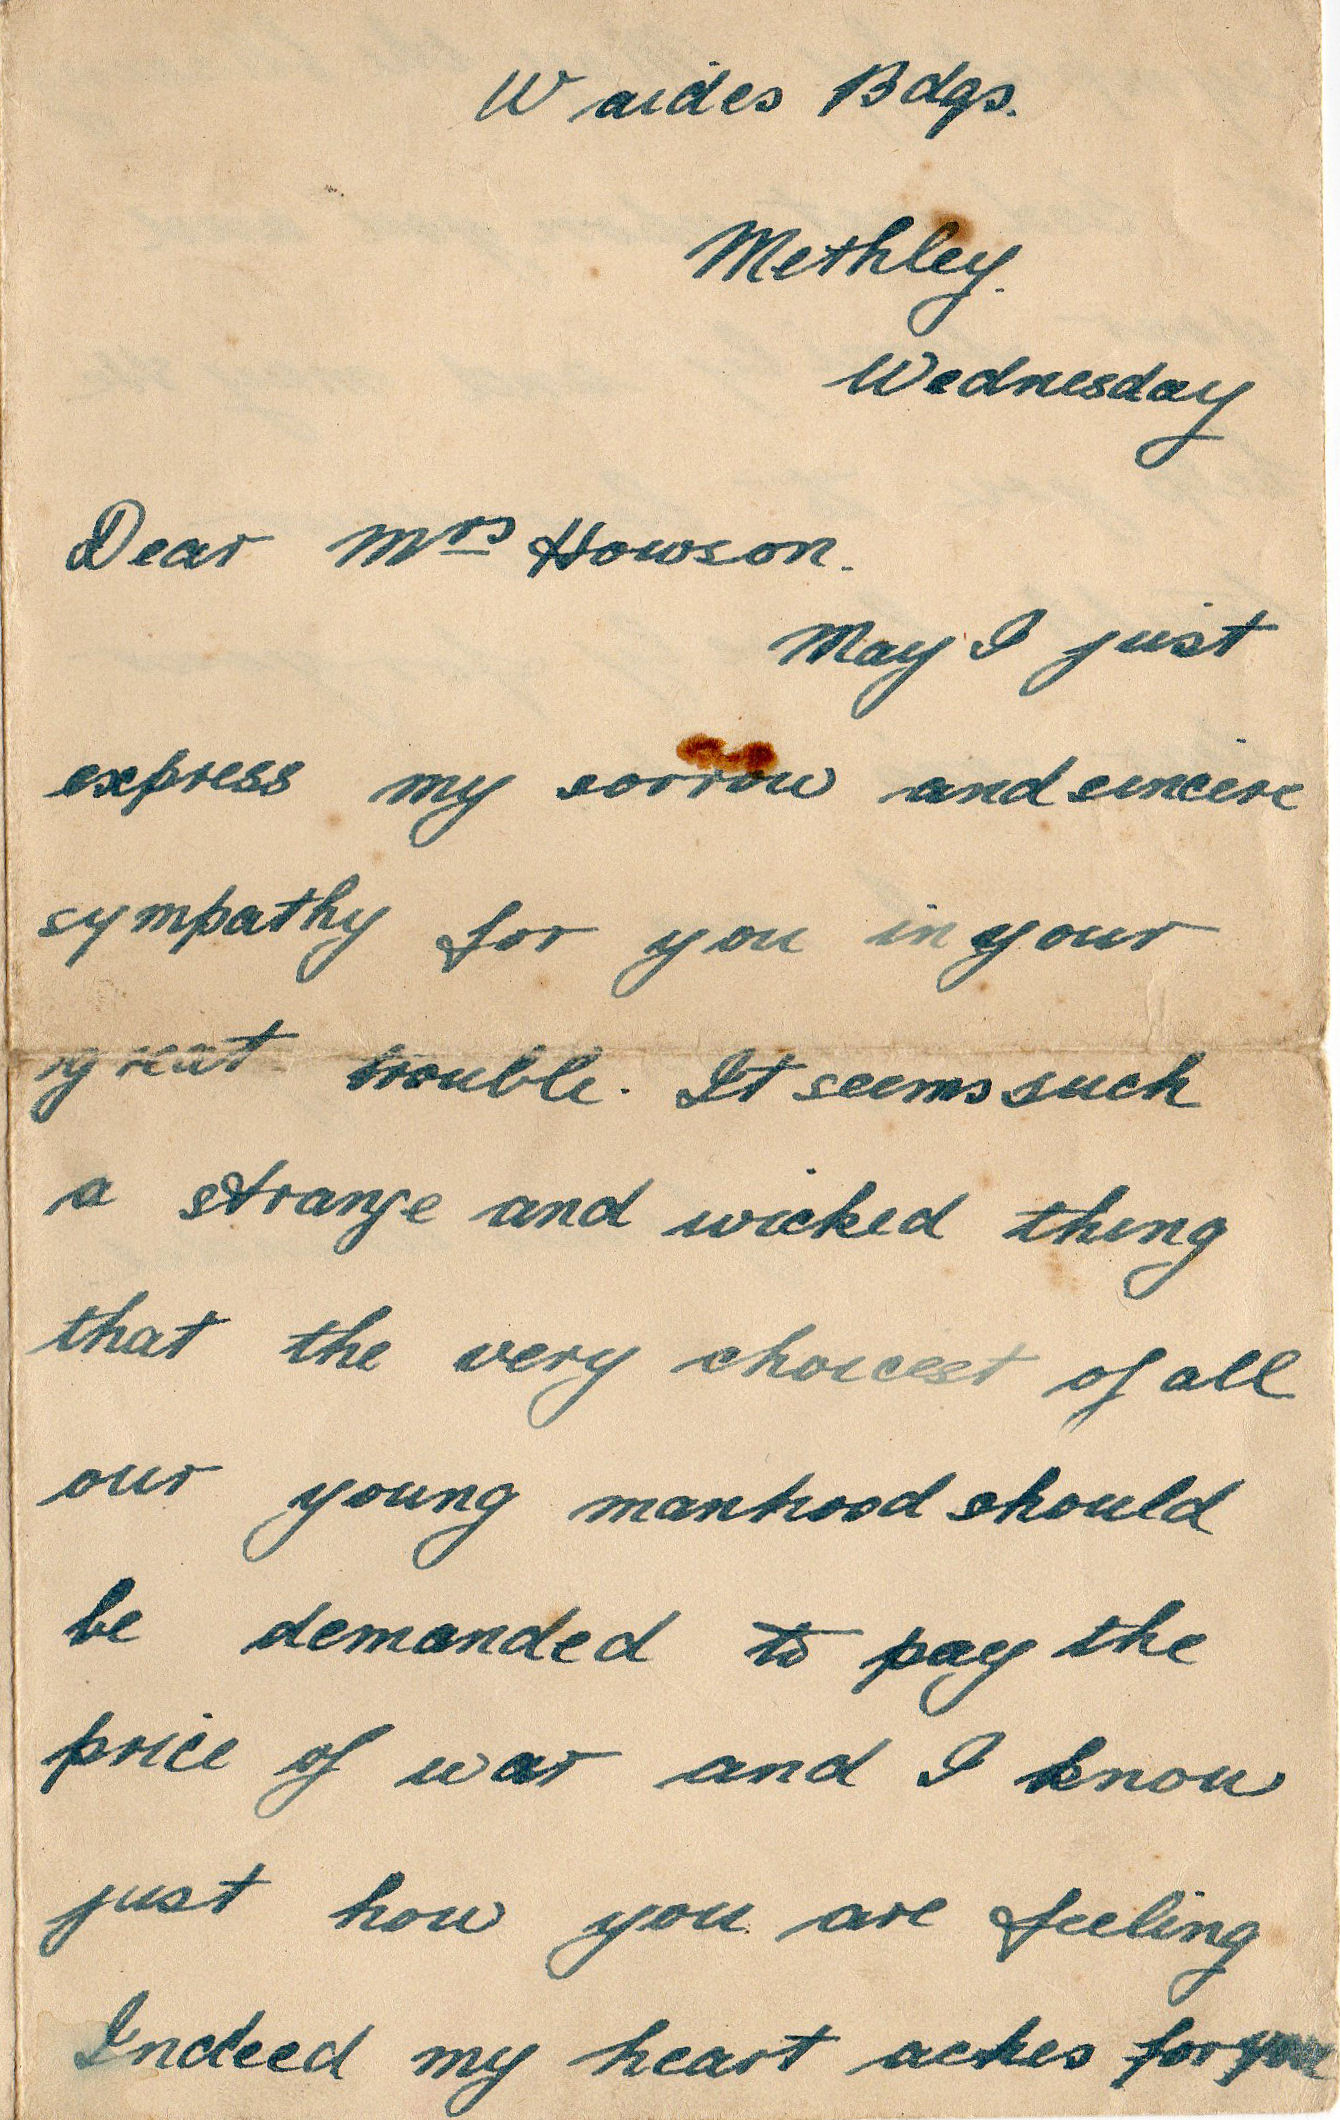 Waides Bdgs.
Methley.
Wednesday
Dear Mrs Howson.
May I just
express my sorrow and sincere
sympathy for you in your
great trouble. It seems such
a strange and wicked thing
that the very choicest of all
our young manhood should
be demanded to pay the
price of war and I know
just how you are feeling
Indeed my heart aches for you